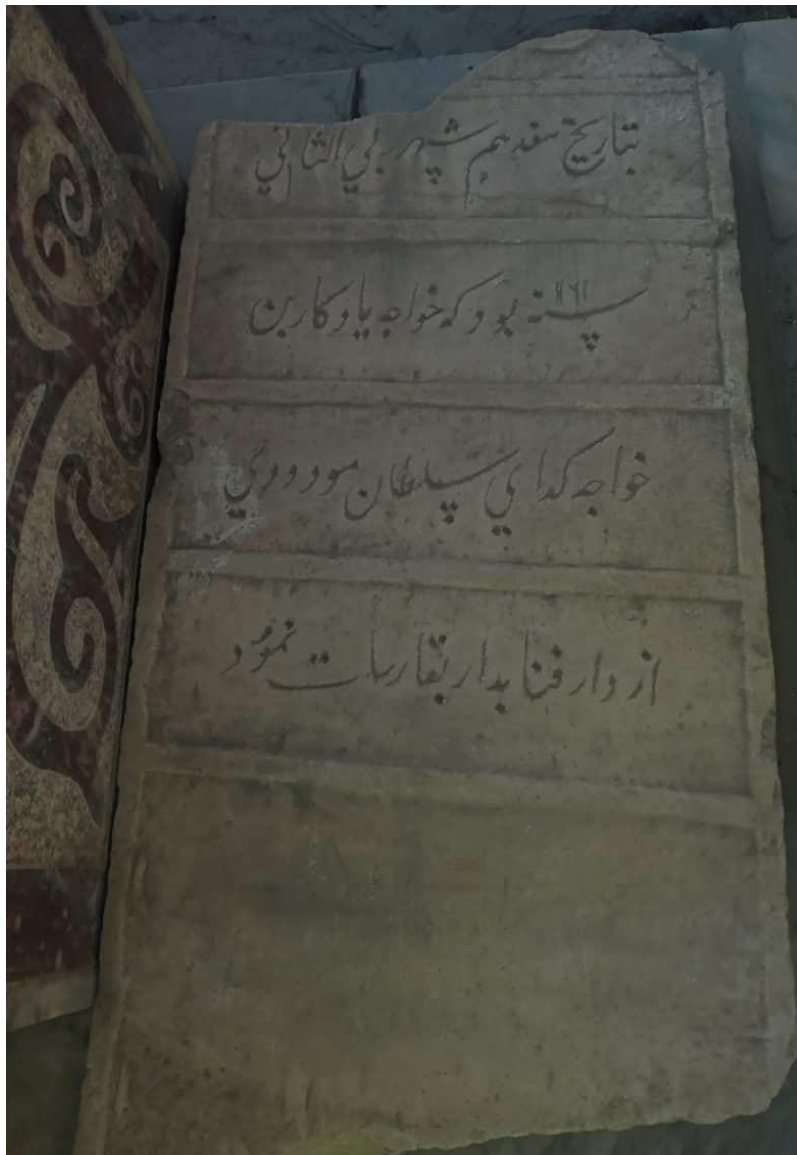 بتاريخ هفدهم شهر ربي الثاني
سنه بود که خواجه يادکار بن
خواجه کداي سلطان مودودي
از دار فنا بدار بقا رحلت نمود